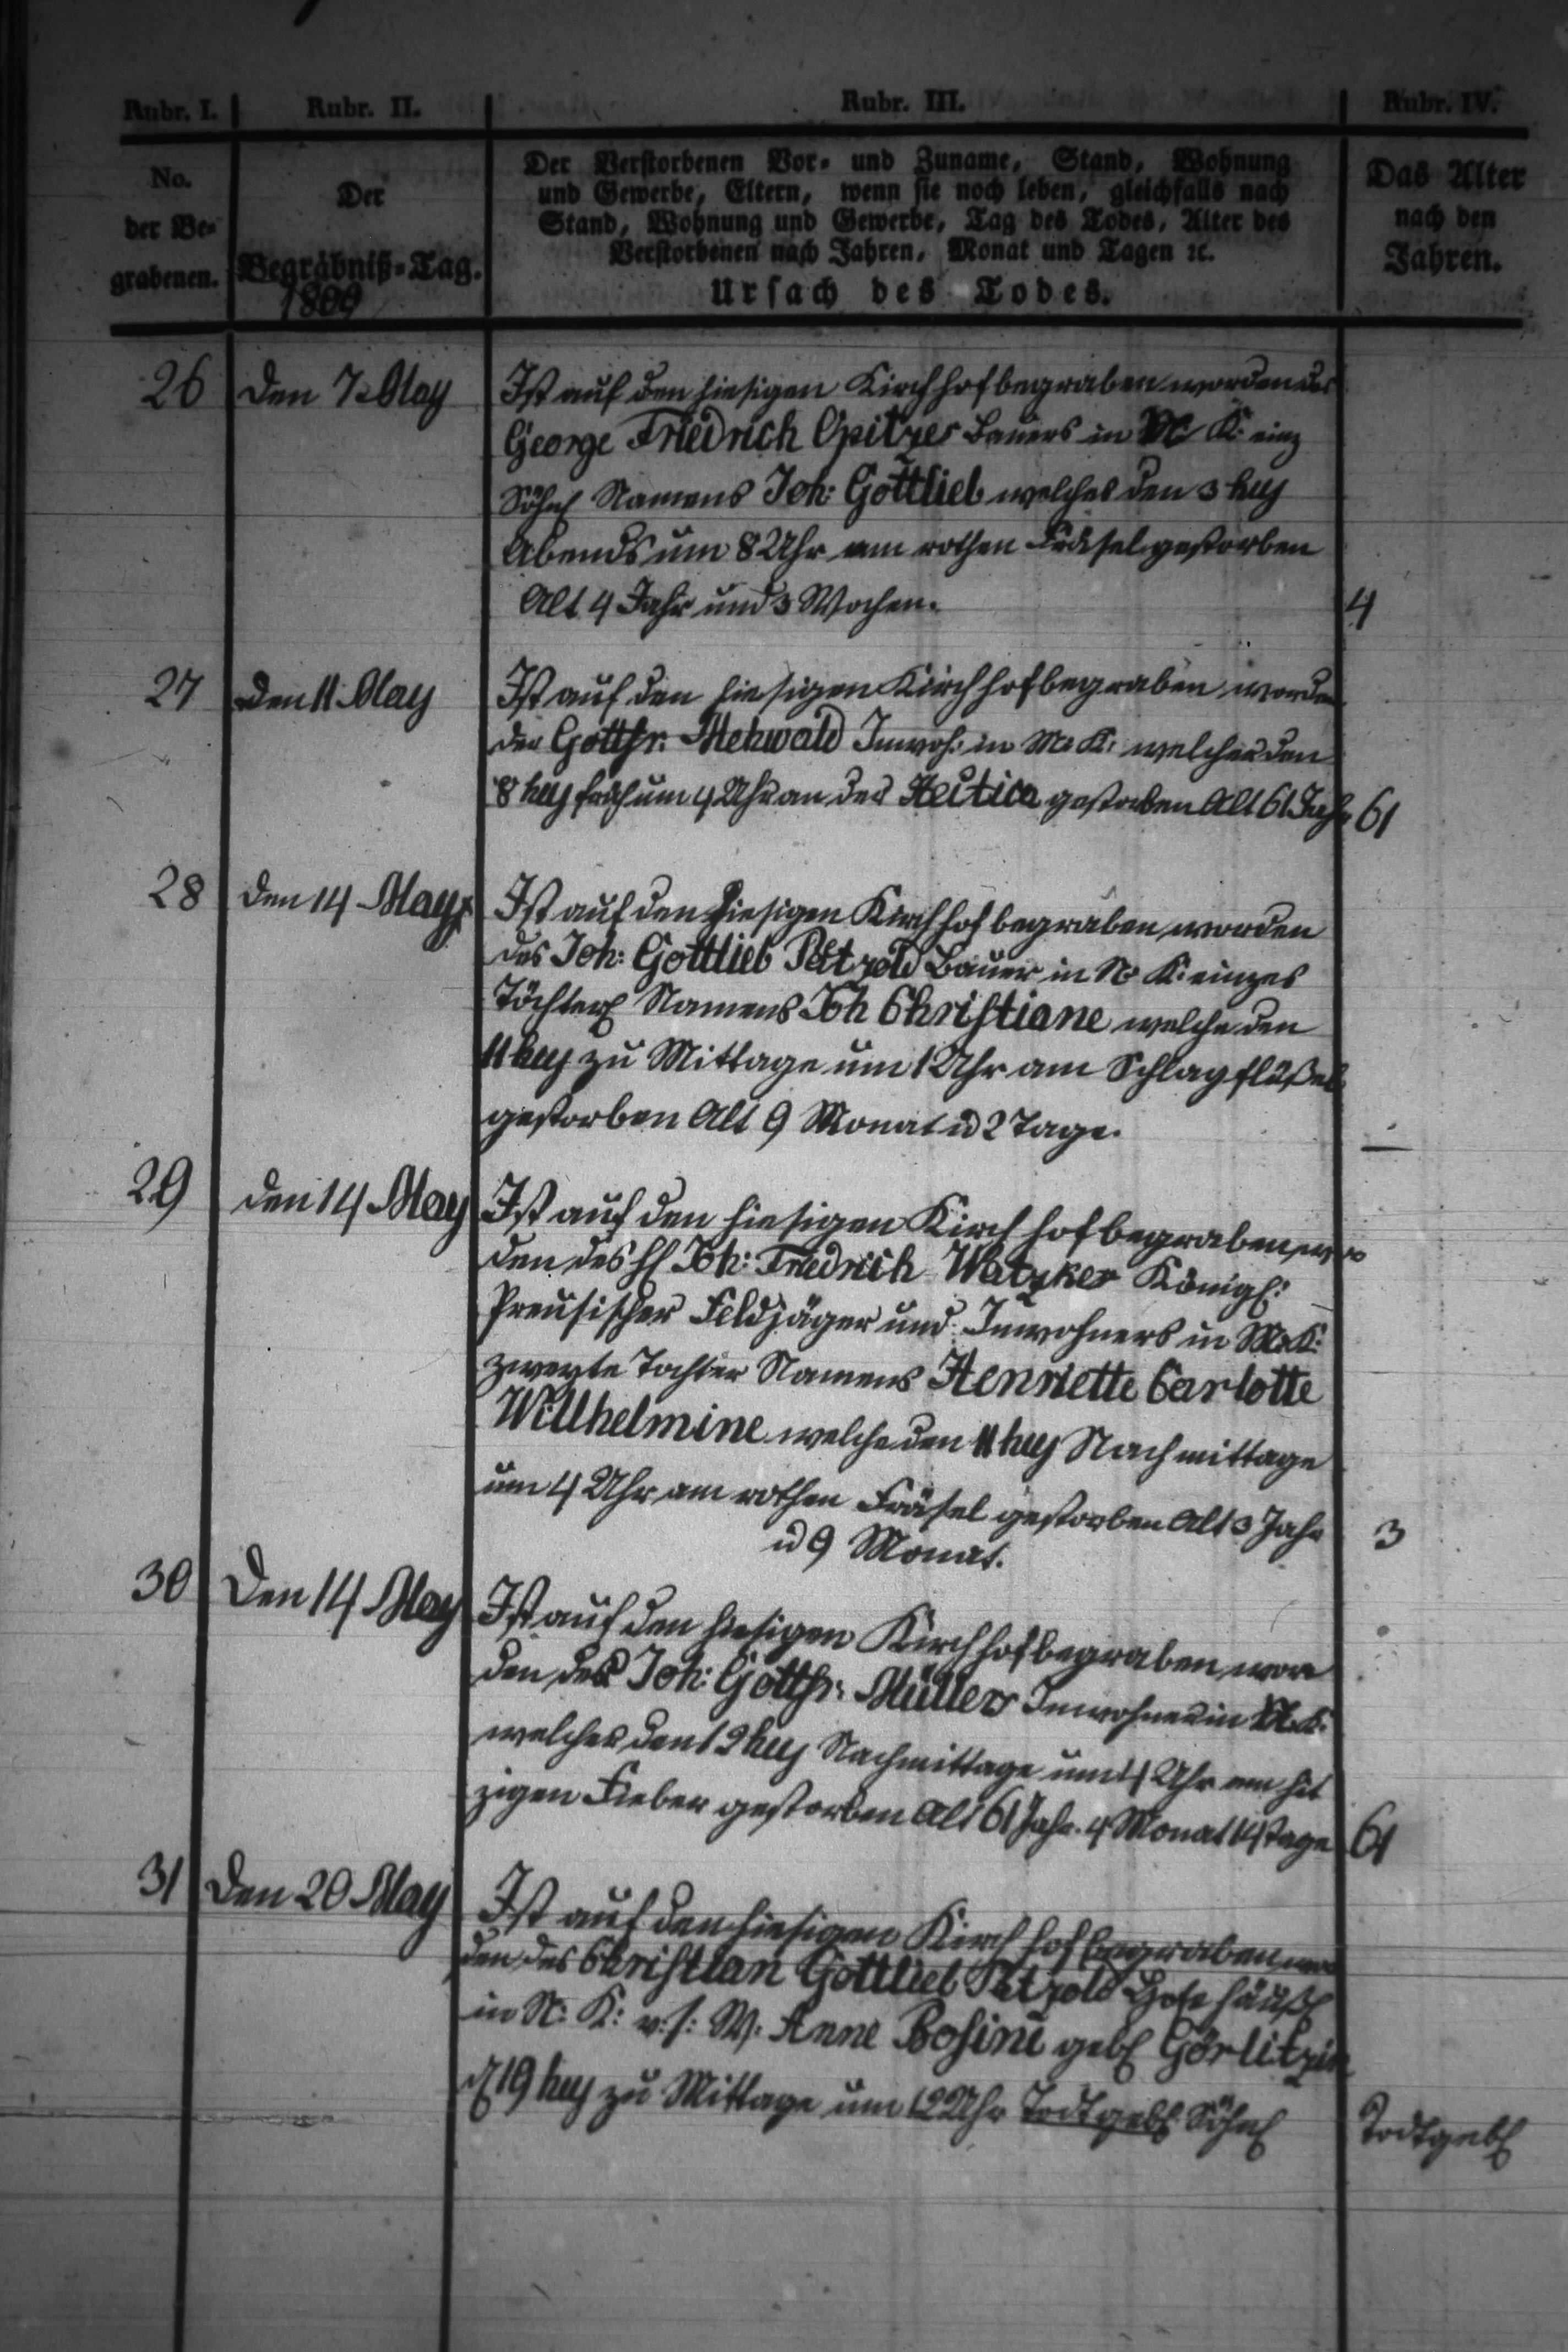 Rubr. I. Rubr. II. Rubr. III. Rubr. IV.
No.
der Be-
grabenen.
Der
Begräbniß-Tag.
1809
Der Verstorbenen Vor- und Zuname, Stand, Wohnung
und Gewerbe, Eltern, wenn sie noch leben, gleichfalls nach
Stand, Wohnung und Gewerbe, Tag des Todes, Alter des
Verstorbenen nach Jahren, Monat und Tagen ꝛc.
Ursach des Todes.
Das Alter
nach den
Jahren.
26 den 7. May Ist auf den hiesigen Kirchhof begraben worden des
George Friedrich Opitzes Bauers in K: einz
Söhnl Namens Joh: Gottlieb welches den 3 huj
Abends um 8 Uhr am rothen Friesel gestorben
Alt 4 Jahr und 3 Wochen. 4
27 den 11. May Ist auf den hiesigen Kirchhof begraben worden
der Gottfr. Mehwald Inwoh: in M. K: welcher den
8 huj früh um 4 Uhr an der Hectica gestorben Alt 61 Jahr 61
28 den 14 May Ist auf den hiesigen Kirchhof begraben worden
des Joh: Gottlieb Pätzold Bauer in N. K: einzes
Töchterl Namens Joh Christiane welche den
11 huj zu Mittage um 1 Uhr am Schlagflußel
gestorben Alt 9 Monat u 2 Tage. —
29 den 14 May Ist auf den hiesigen Kirchhof begraben wor
den des H Joh: Friedrich Watzkes Königl:
Preusischer Feldjäger und Inwohners in M. K:
zweyte Tochter Namens Henriette Carlotte
Willhelmine welche den 11 huj Nachmittage
um 4 Uhr am rothen Fräsel gestorben Alt 3 Jahr 3
u 9 Monat.
30 Den 14 May Ist auf den hiesigen Kirchhof begraben wor
den der Joh: Gottfr: Müllers Inwohner in K:
welcher den 12 huj Nachmittage um 4 Uhr am hit
zigen Fieber gestorben Alt 61 Jahr. 4 Monat 14 Tage 61
31 Den 20 May Ist auf den hiesigen Kirchhof begraben wor
den des Christian Gottlieb Pätzold Hofehäußl
in N: K: v: s: W: Anne Rosine gebl Görlitzin
d 19 huj zu Mittage um 12 Uhr Todtgebl Söhnl Todtgebl